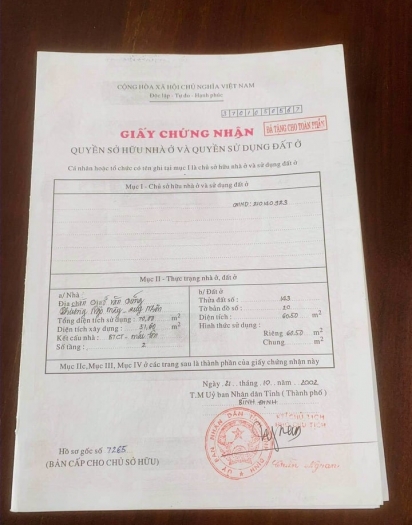 CỘNG HÒA XÃ HỘI CHỦ NGHĨA VIỆT NAM
Độc lập - Tự do - Hạnh phúc
ĐÃ TẶNG CHO TOÀN
GIẤY CHỨNG NHẬN
QUYỀN SỞ HỮU NHÀ Ở VÀ QUYỀN SỬ DỤNG ĐẤT Ở
Cá nhân hoặc tổ chức có tên ghi tại mục I là chủ sở hữu nhà ở và sử dụng đất ở
Mục I - Chủ sở hữu nhà ở và sử dụng đất ở
Mục II - Thực trạng nhà ở, đất ở
a/ Nhà
Địa chỉ
Tổng diện tích sử dụng : m2
Diện tích xây dựng : 51,60 m2
Kết cấu nhà : BTCT -
Số tầng : 2
b/ Đất ở
Thửa đất số : 163
Tờ bản đồ số : 20
Diện tích : 60.50 m2
Hình thức sử dụng :
Riêng 60.50 m2
Chung m2
Mục IIc, Mục III, Mục IV ở các trang sau là thành phần của giấy chứng nhận này
Ngày 21 tháng 10 năm 2002
T.M Uỷ ban Nhân dân Tỉnh ( Thành phố )
BÌNH ĐỊNH
KT CHỦ TỊCH
PHÓ CHỦ TỊCH
Hồ sơ gốc số 7265
(BẢN CẤP CHO CHỦ SỞ HỮU)